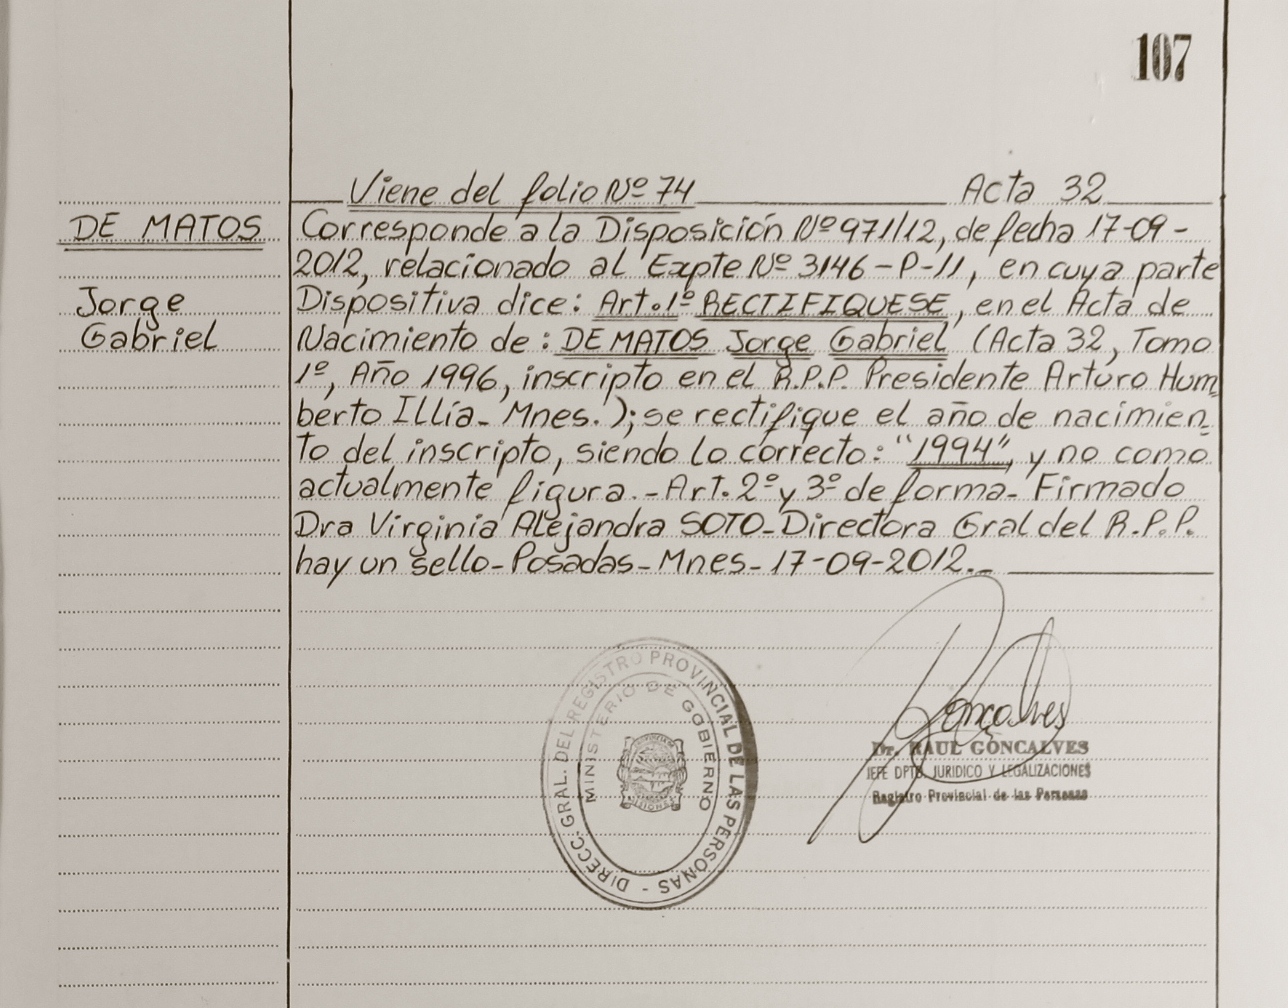 107
Viene del folio Nº 74 Acta 32
DE MATOS
Jorge
Gabriel
Corresponde a la Disposición Nº 971/12, de fecha 17-09-
2012, relacionado al Expte Nº 3146-P-11, en cuya parte
Dispositiva dice: Art. 1º RECTIFIQUESE, en el Acta de
Nacimiento de: DE MATOS Jorge Gabriel (Acta 32, Tomo
1º, Año 1996, inscripto en el R.P.P. Presidente Arturo Hum
berto Illía- Mnes.); se rectifique el año de nacimien_
to del inscripto, siendo lo correcto: "1994", y no como
actualmente figura.-Art. 2º y 3º de forma- Firmado
Dra Virginia Alejandra SOTO-Directora Gral del R.P.P.
hay un sello-Posadas-Mnes-17-09-2012.-
DIRECC. GRAL. DEL REGISTRO PROVINCIAL DE LAS PERSONAS -
MINISTERIO DE GOBIERNO
MISIONES
Gonçalves
Dr. RAUL GONCALVES
JEFE DPTO. JURIDICO Y LEGALIZACIONES
Registro Provincial de las Personas